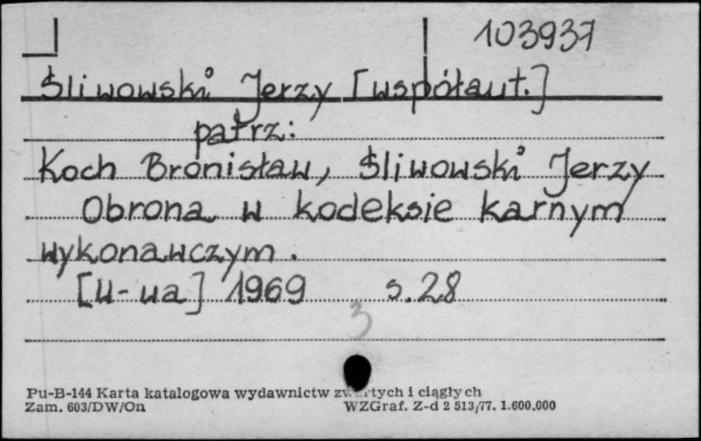 103937
Śliwowski Jerzy [współaut.]
patrz:
Koch Bronisław, Śliwowski Jerzy
Obrona w kodeksie karnym
wykonawczym.
[W-wa] 1969 s. 28
3
Pu-B-144 Karta katalogowa wydawnictw zwartych i ciągłych
Zam. 603/DW/On WZGraf. Z-d 2 513/77. 1.600.000